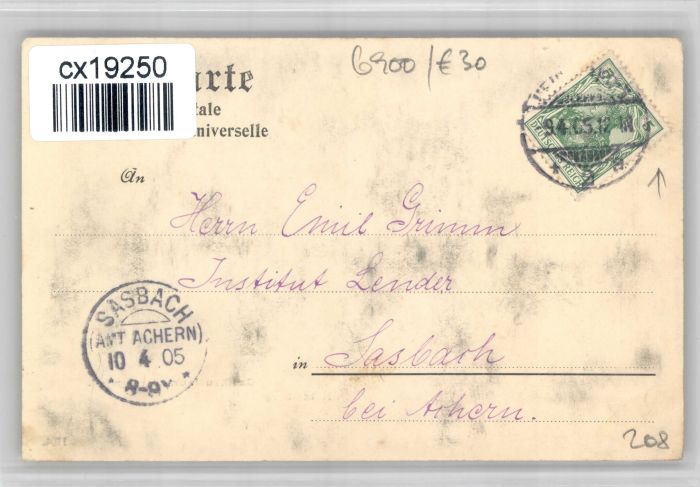 cx19250
6900/€30
arte
tale
niverselle
An
Herrn Emil Grimm
Institut Lender
in Sasbach
bei Achern.
9.4.05.12
REICH
SASBACH
(AMT ACHERN)
10 4 05
8-9V
208